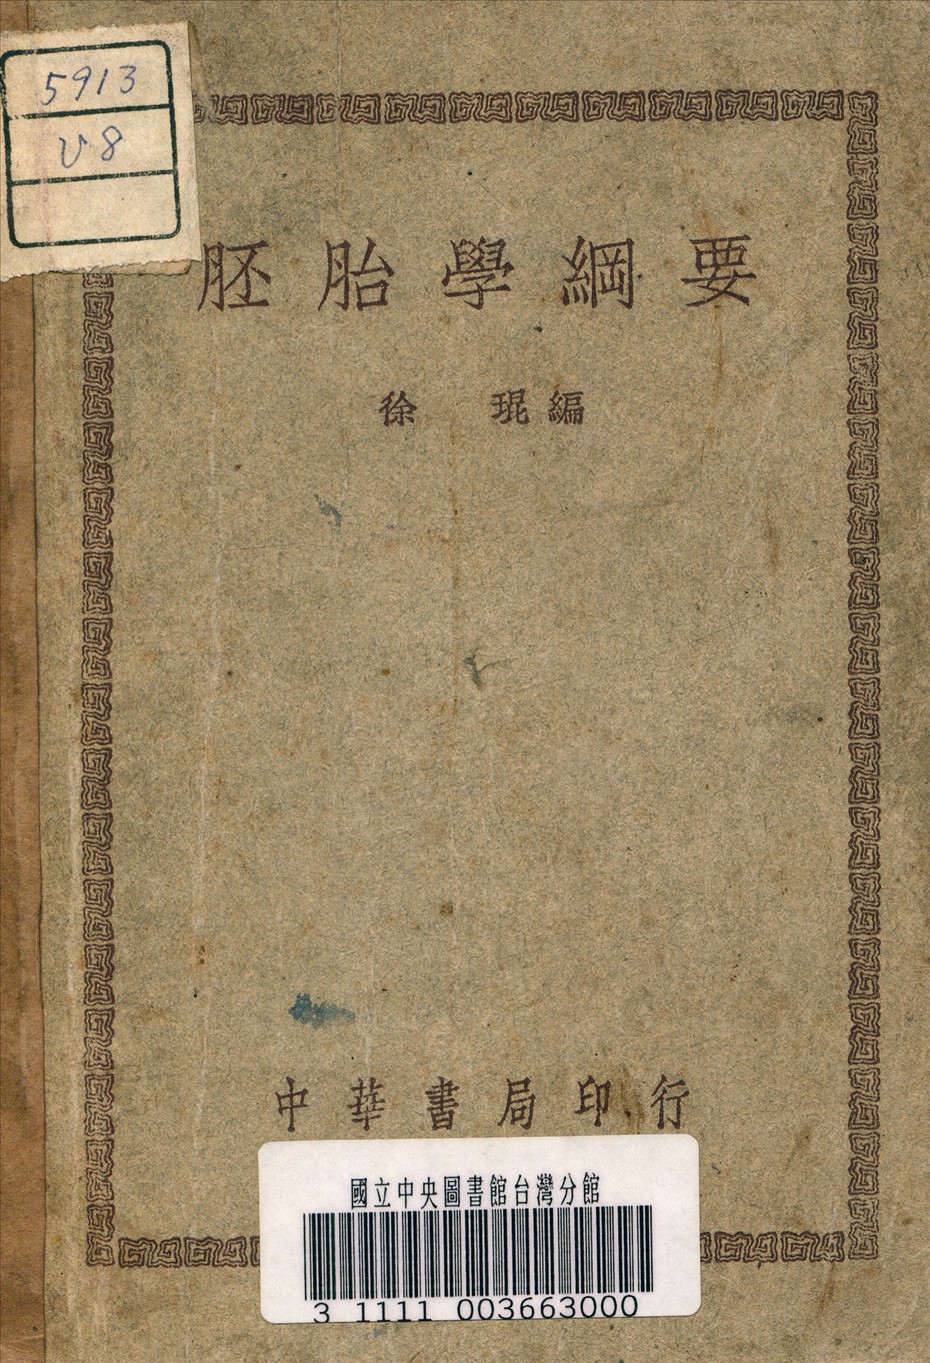 5913
V8
胚胎學綱要
徐 琨編
中華書局印行
國立中央圖書館台灣分館
3 1111 003663000